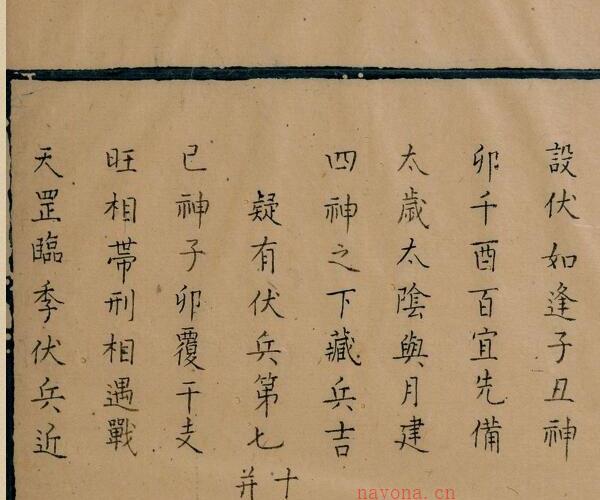 設伏如逢子丑神
卯千酉百宜先備
太歲太陰與月建
四神之下藏兵吉
疑有伏兵第七十
并
已神子卯覆干支
旺相帶刑相遇戰
天罡臨季伏兵近
navona.cn